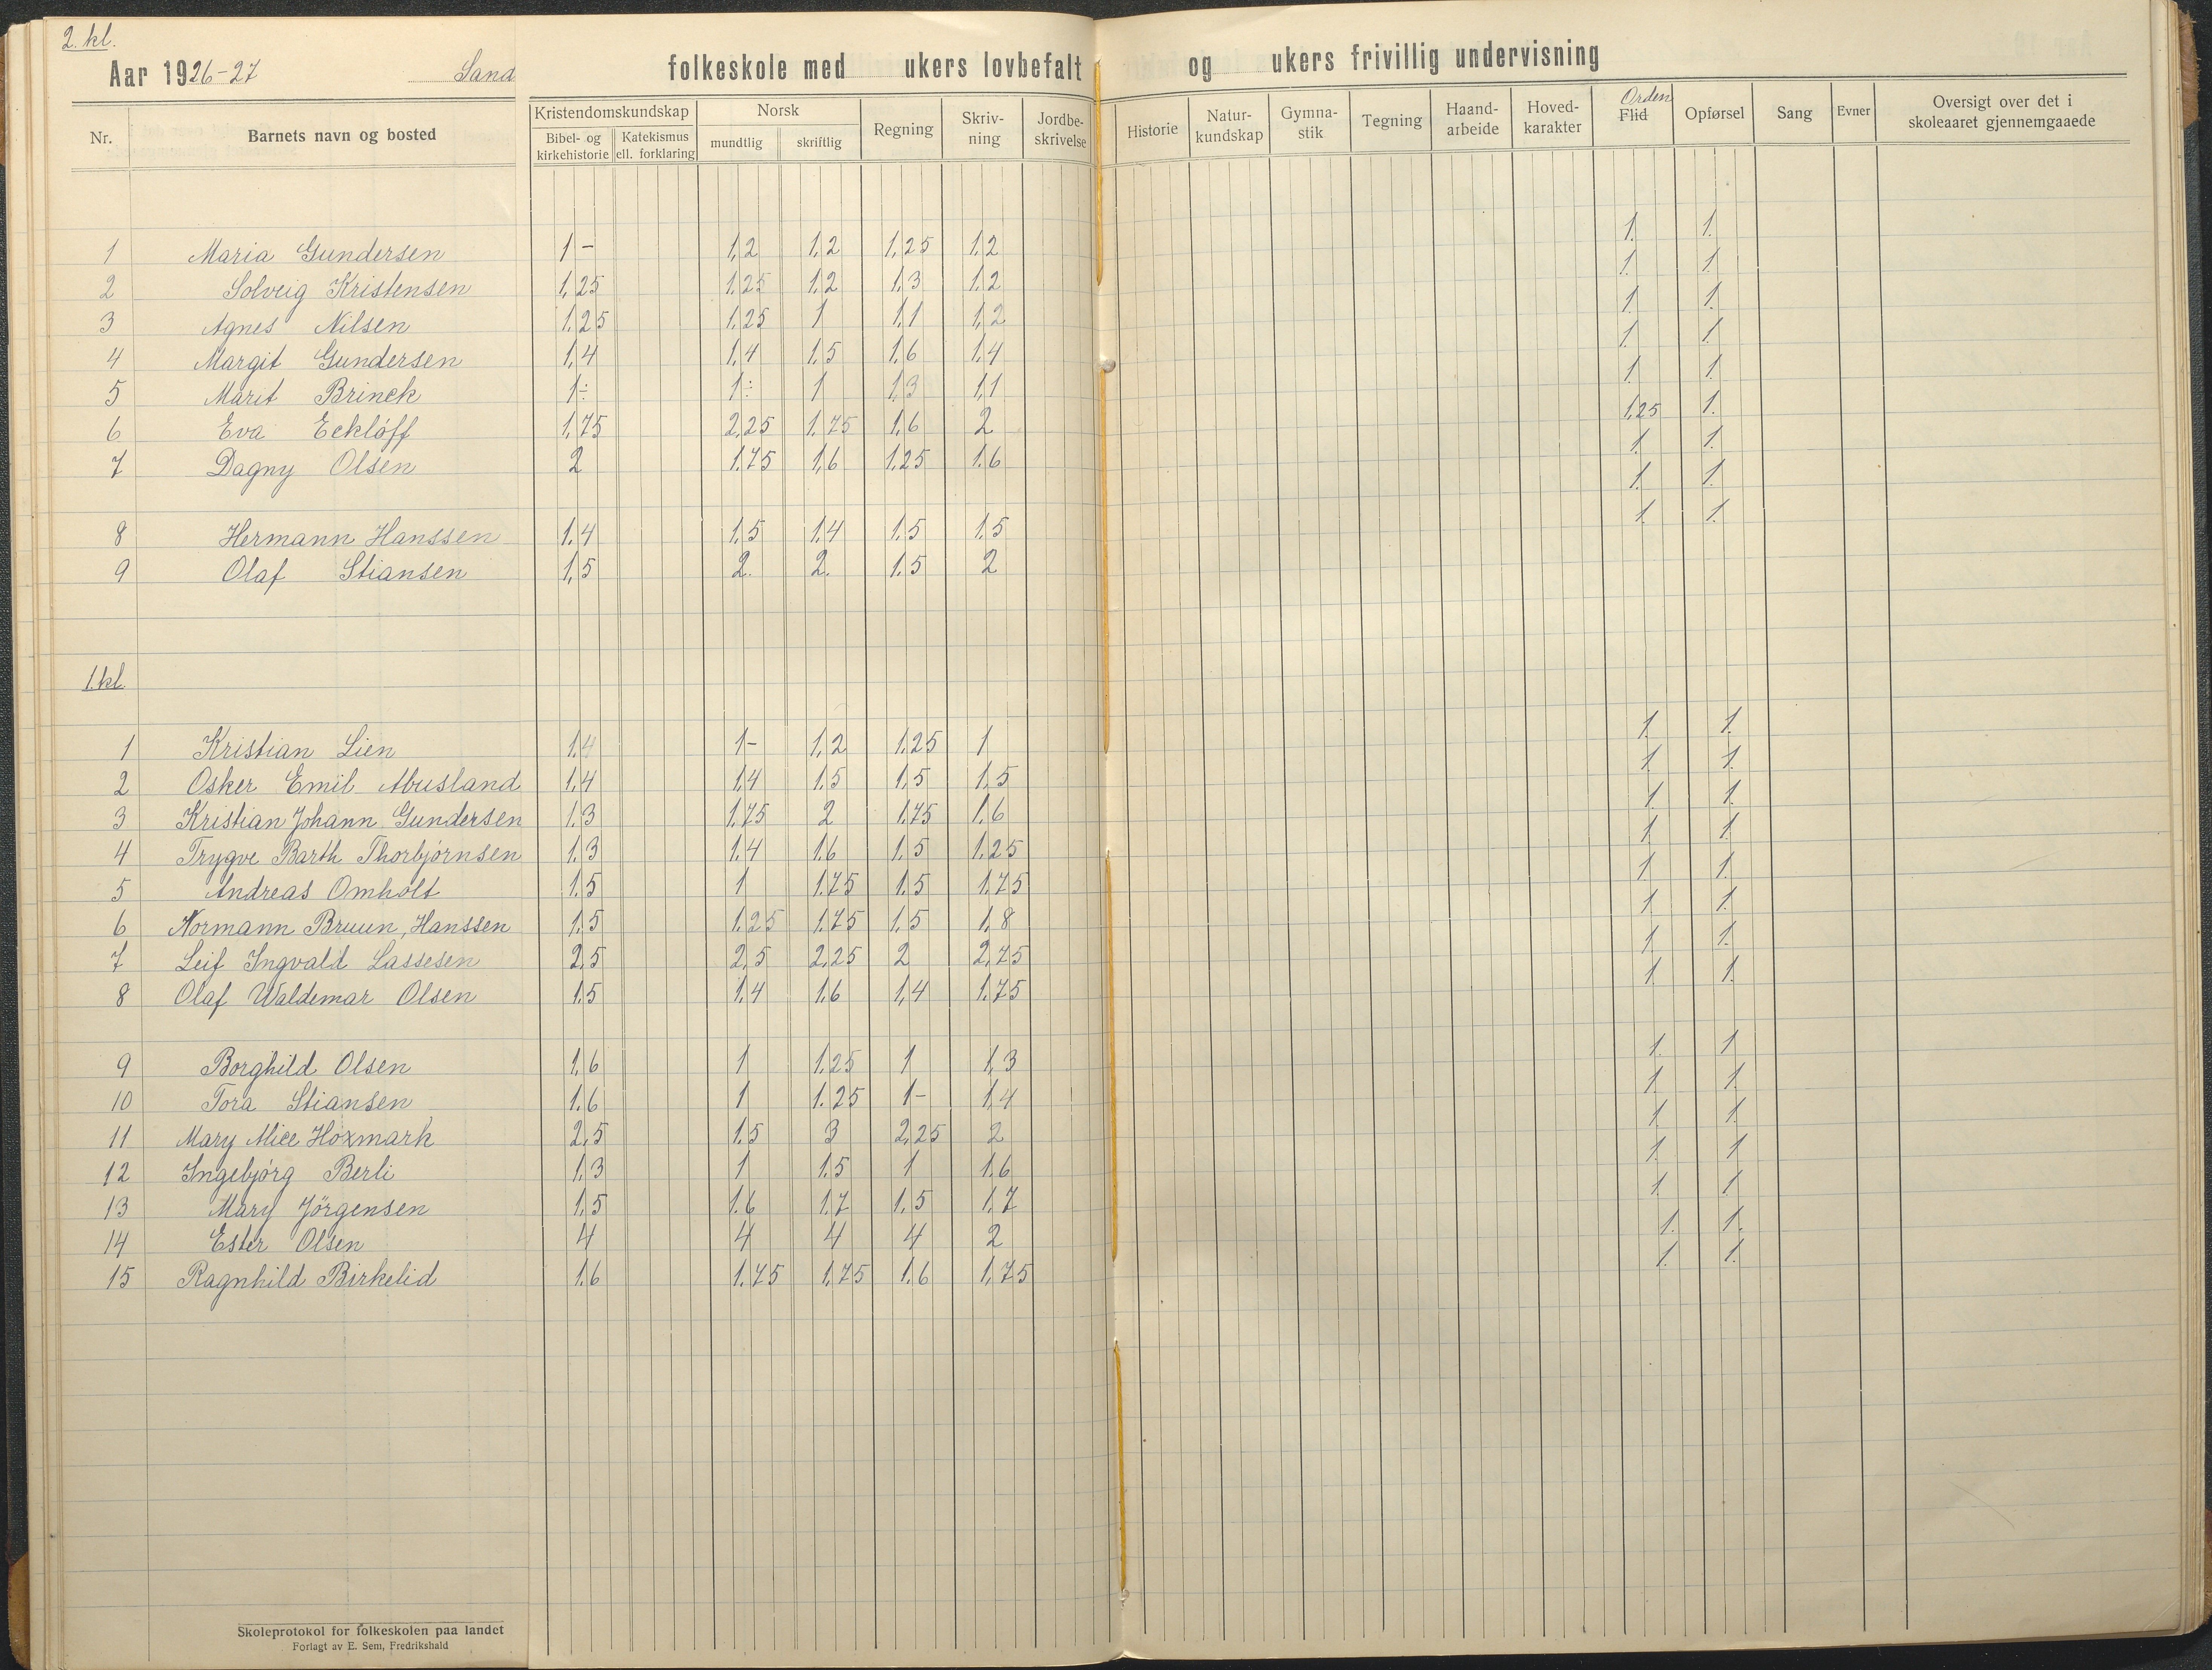 2. kl.
Aar 1926-27 Sand folkeskole med ukers lovbefalt og ukers frivillig undervisning
Nr. Barnets navn og bosted Kristendomskundskap Bibel- og kirkehistorie Katekismus ell. forklaring Norsk mundtlig skriftlig Regning Skriv-ning Jordbe-skrivelse Historie Natur-kundskap Gymna-stik Tegning Haand-arbeide Hoved-karakter Orden Flid Opførsel Sang Evner Oversigt over det i skoleaaret gjennemgaaede
1 Maria Gundersen 1- 1,2 1,2 1,25 1,2 1. 1.
2 Solveig Kristensen 1,25 1,25 1,2 1,3 1,2 1. 1.
3 Agnes Nilsen 1,25 1,25 1 1,1 1,2 1. 1.
4 Margit Gundersen 1,4 1,4 1,5 1,6 1,4 1. 1.
5 Marit Brinck 1÷ 1÷ 1 1,3 1,1 1. 1.
6 Eva Ecklöff 1,75 2,25 1,75 1,6 2 1,25 1.
7 Dagny Olsen 2 1,75 1,6 1,25 1,6 1. 1.
8 Hermann Hanssen 1,4 1,5 1,4 1,5 1,5 1. 1.
9 Olaf Stiansen 1,5 2. 2. 1,5 2 1. 1.
1. kl.
1 Kristian Lien 1,4 1- 1,2 1,25 1 1. 1.
2 Osker Emil Abusland 1,4 1,4 1,5 1,5 1,5 1. 1.
3 Kristian Johann Gundersen 1,3 1,75 2 1,75 1,6 1. 1.
4 Trygve Barth Thorbjørnsen 1,3 1,4 1,6 1,5 1,25 1. 1.
5 Andreas Omholt 1,5 1 1,75 1,5 1,75 1. 1.
6 Normann Bruun, Hanssen 1,5 1,25 1,75 1,5 1,8 1. 1.
7 Leif Ingvald Lassesen 2,5 2,5 2,25 2 2,75 1. 1.
8 Olaf Waldemar Olsen 1,5 1,4 1,6 1,4 1,75 1. 1.
9 Borghild Olsen 1,6 1 1,25 1 1,3 1. 1.
10 Tora Stiansen 1,6 1 1,25 1- 1,4 1. 1.
11 Mary Alice Hoxmark 2,5 1,5 3 2,25 2 1. 1.
12 Ingebjørg Berli 1,3 1 1,5 1 1,6 1. 1.
13 Mary Jörgensen 1,5 1,6 1,7 1,5 1,7 1. 1.
14 Ester Olsen 4 4 4 4 2 1. 1.
15 Ragnhild Birkelid 1,6 1,75 1,75 1,6 1,75 1. 1.
Skoleprotokol for folkeskolen paa landet
Forlagt av E. Sem, Fredrikshald